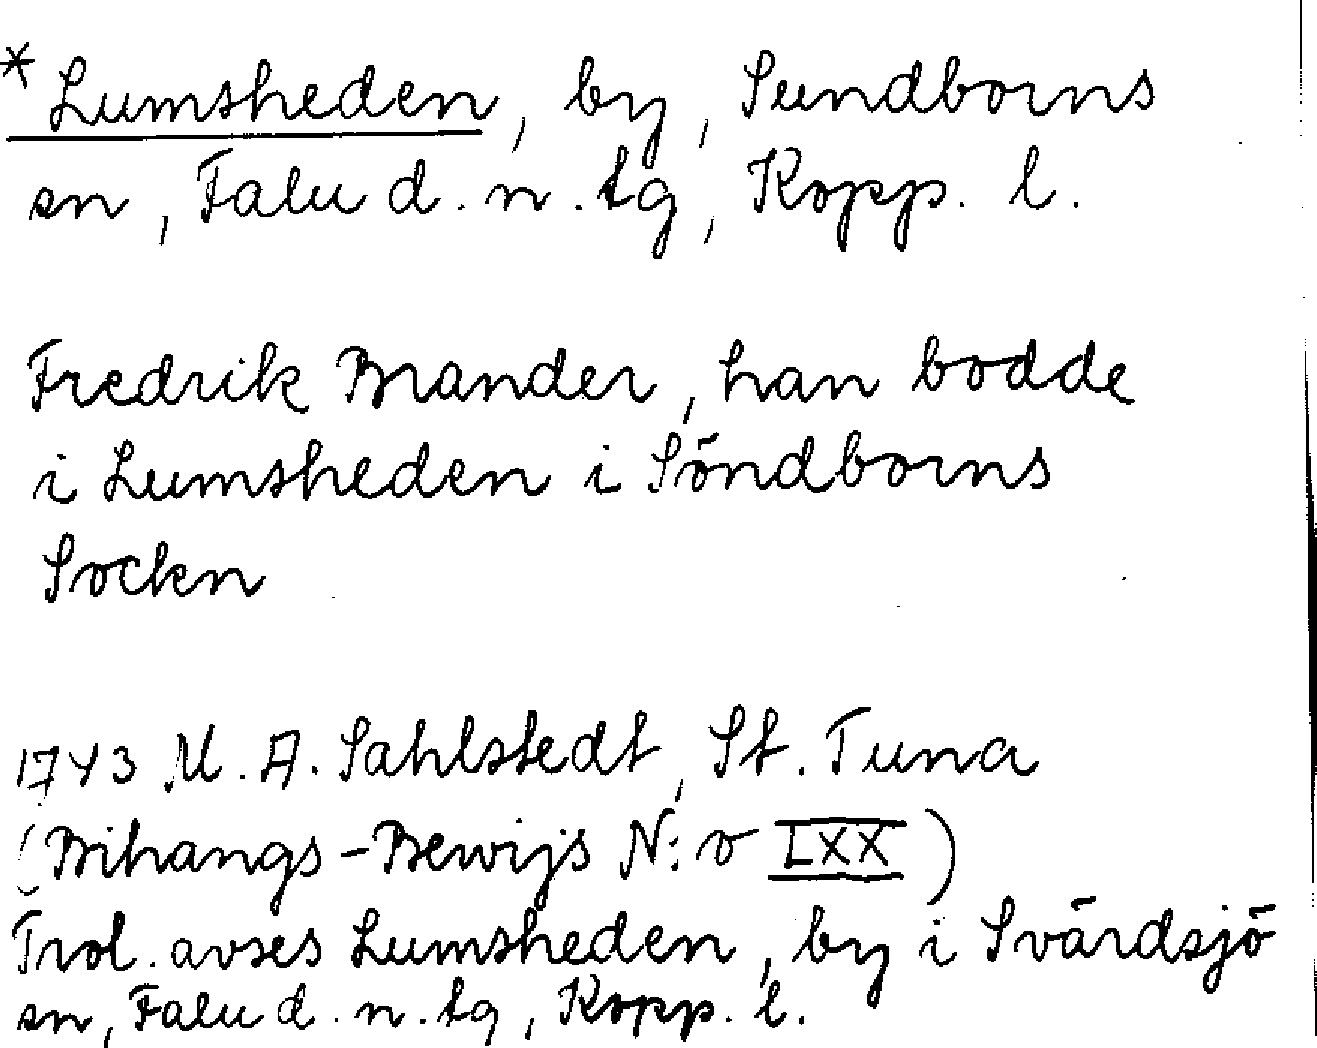 * Lumsheden, by, Sundborns
sn, Falu d. n. tg, Kopp. l.
Fredrik Brander, han bodde
i Lumsheden i Söndborns
Sockn
1743 M. A. Sahlstedt, St. Tuna
(Bihangs-Bewijs N:o LXX)
Trol. avses Lumsheden, by i Svärdsjö
sn, Falu d. n. tg, Kopp. l.